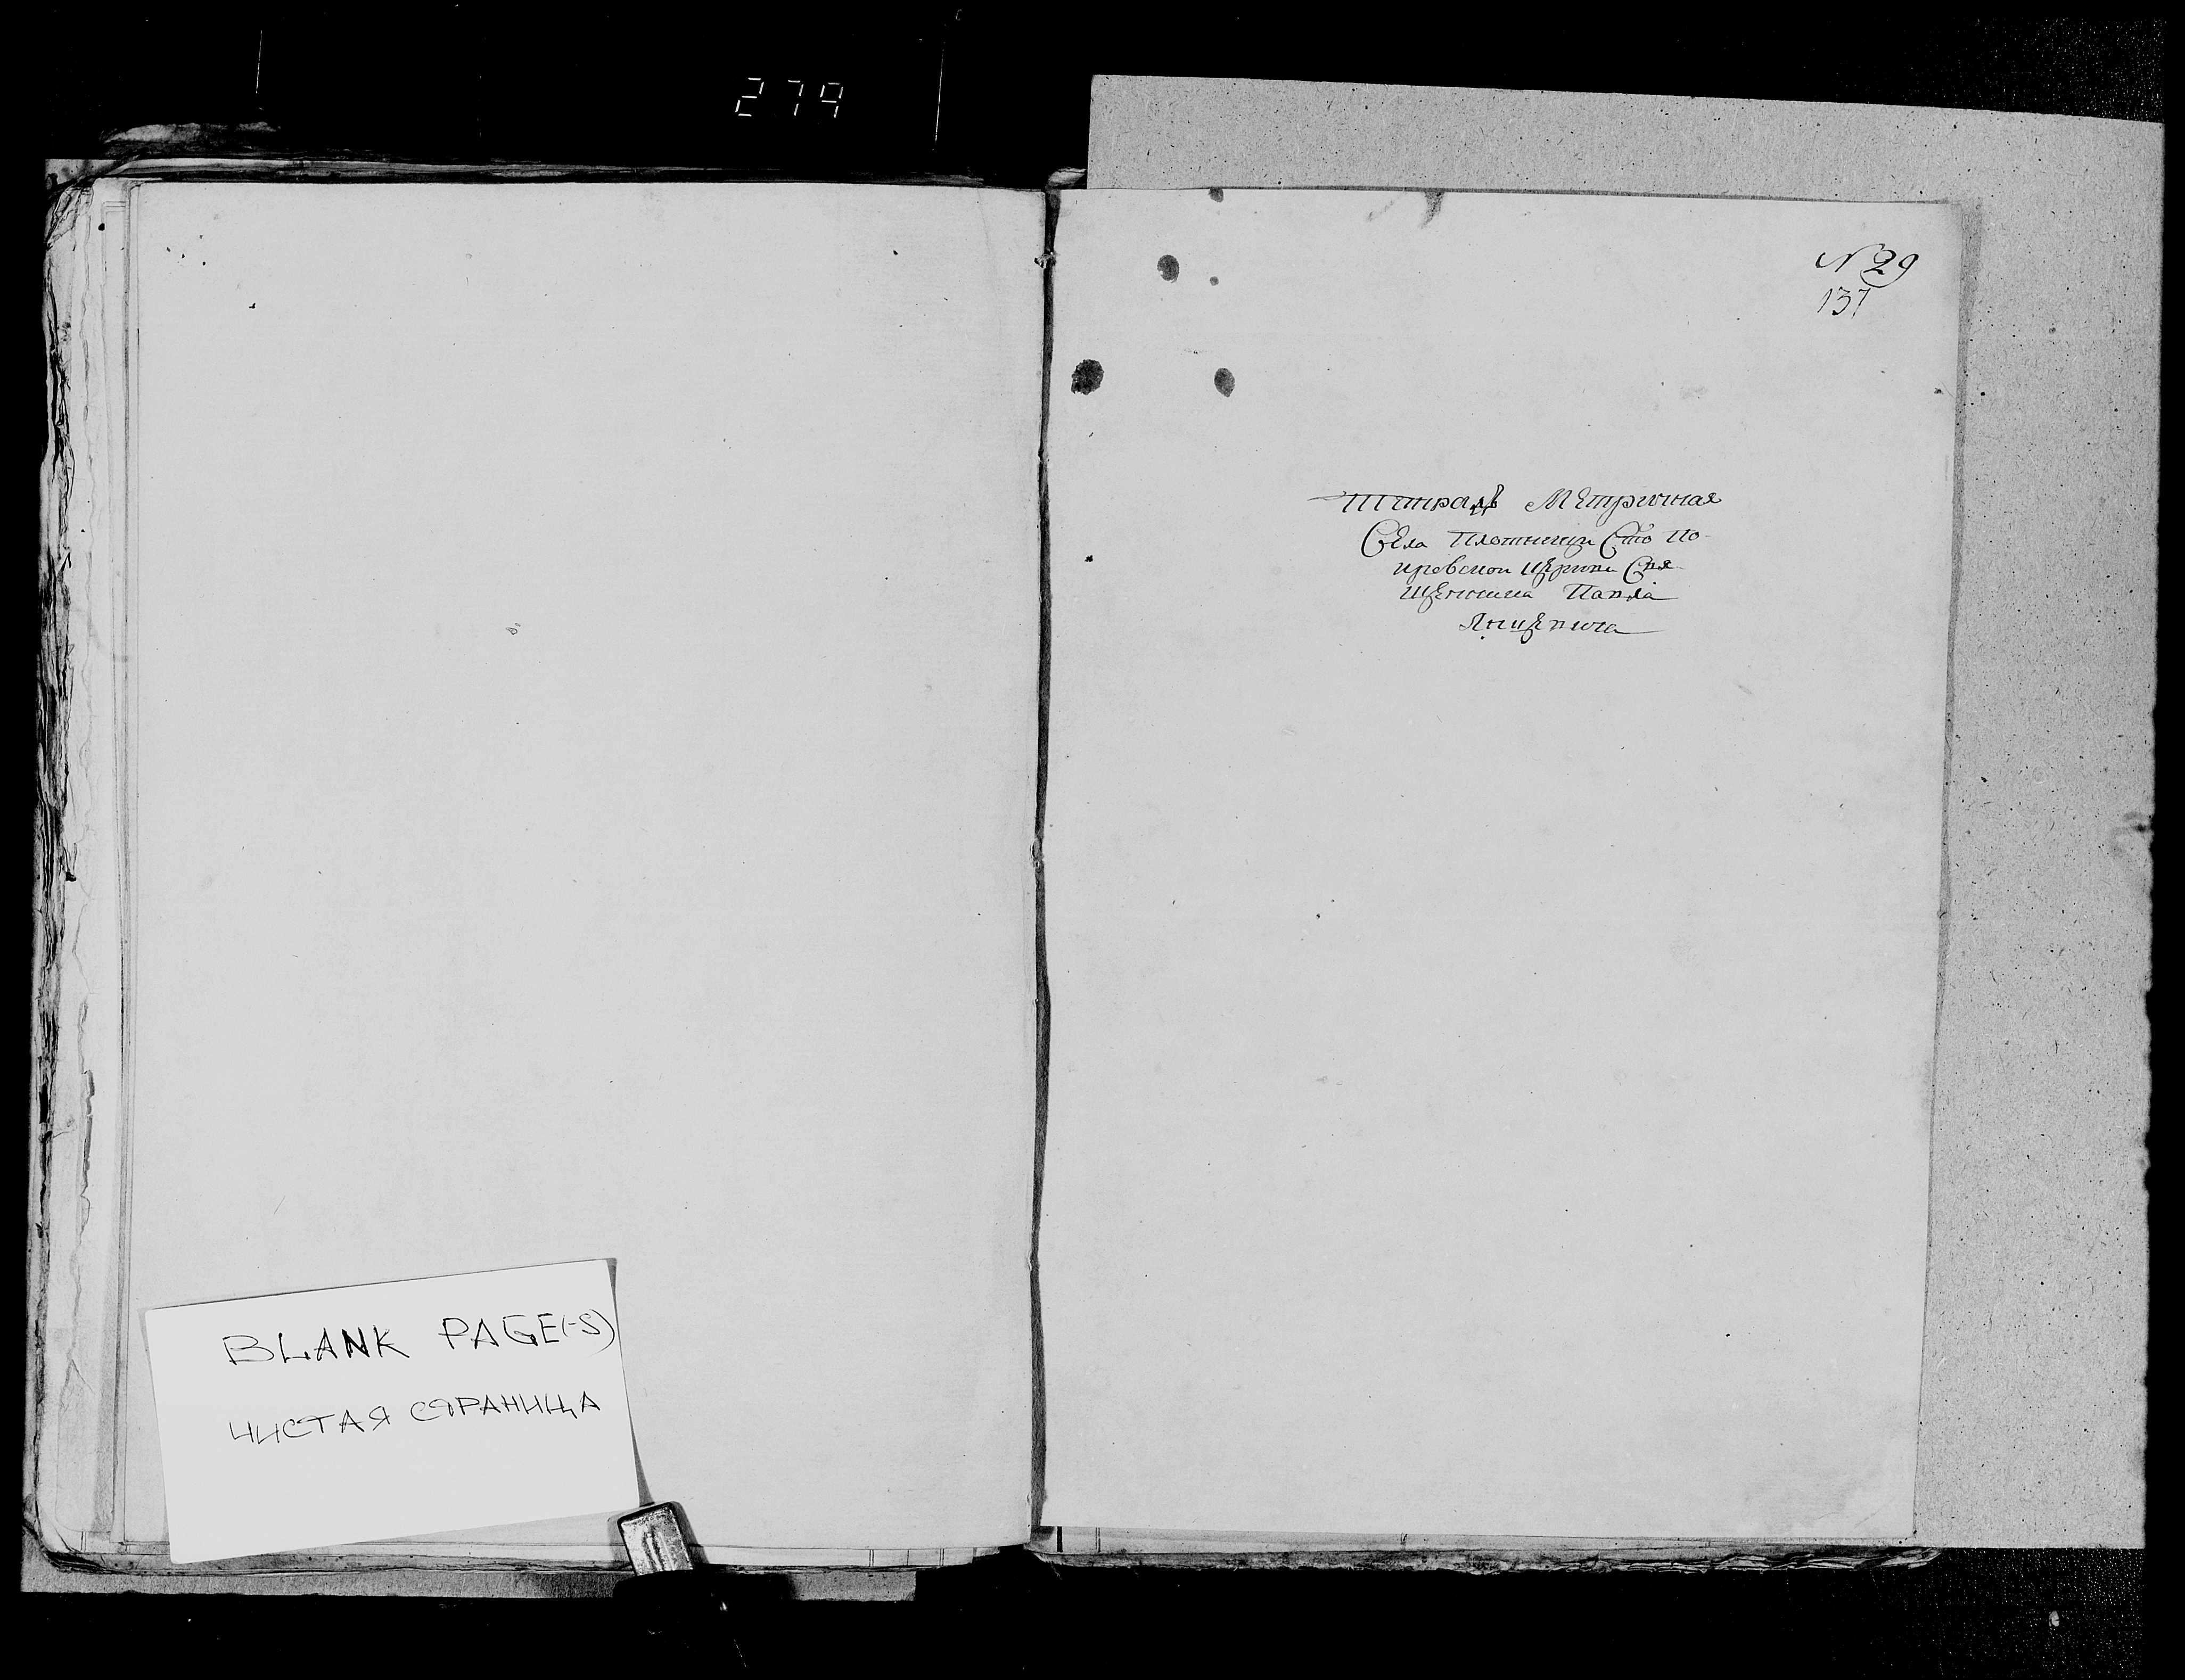 279
BLANK PAGE(-S)
ЧИСТАЯ СТРАНИЦА
N 29
137
Тетрадь Метричная
Села Плотницы Сто По-
кровской Церкви Свя-
щенника Павла
Янцевича